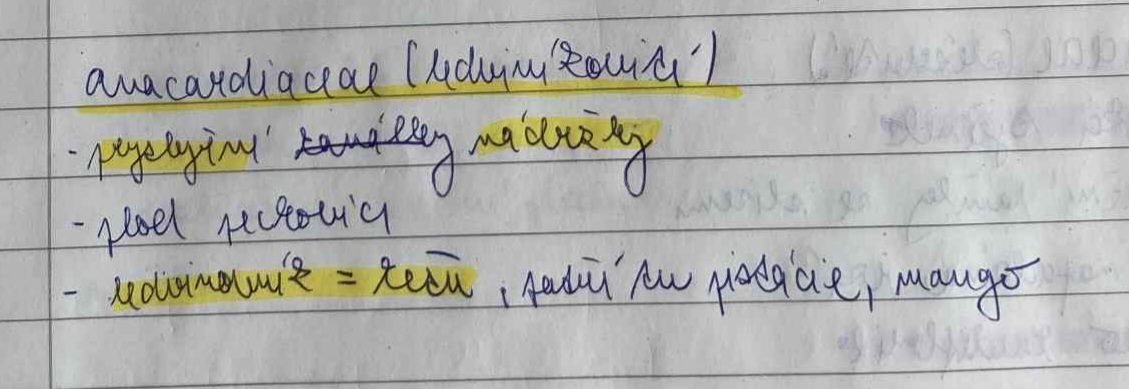 anacardiaceae (ledvinníkovité)
- pryskyřičné kanálky nádržky
- plod peckovice
- ledvinovník = kešu, patří sem pistácie, mango